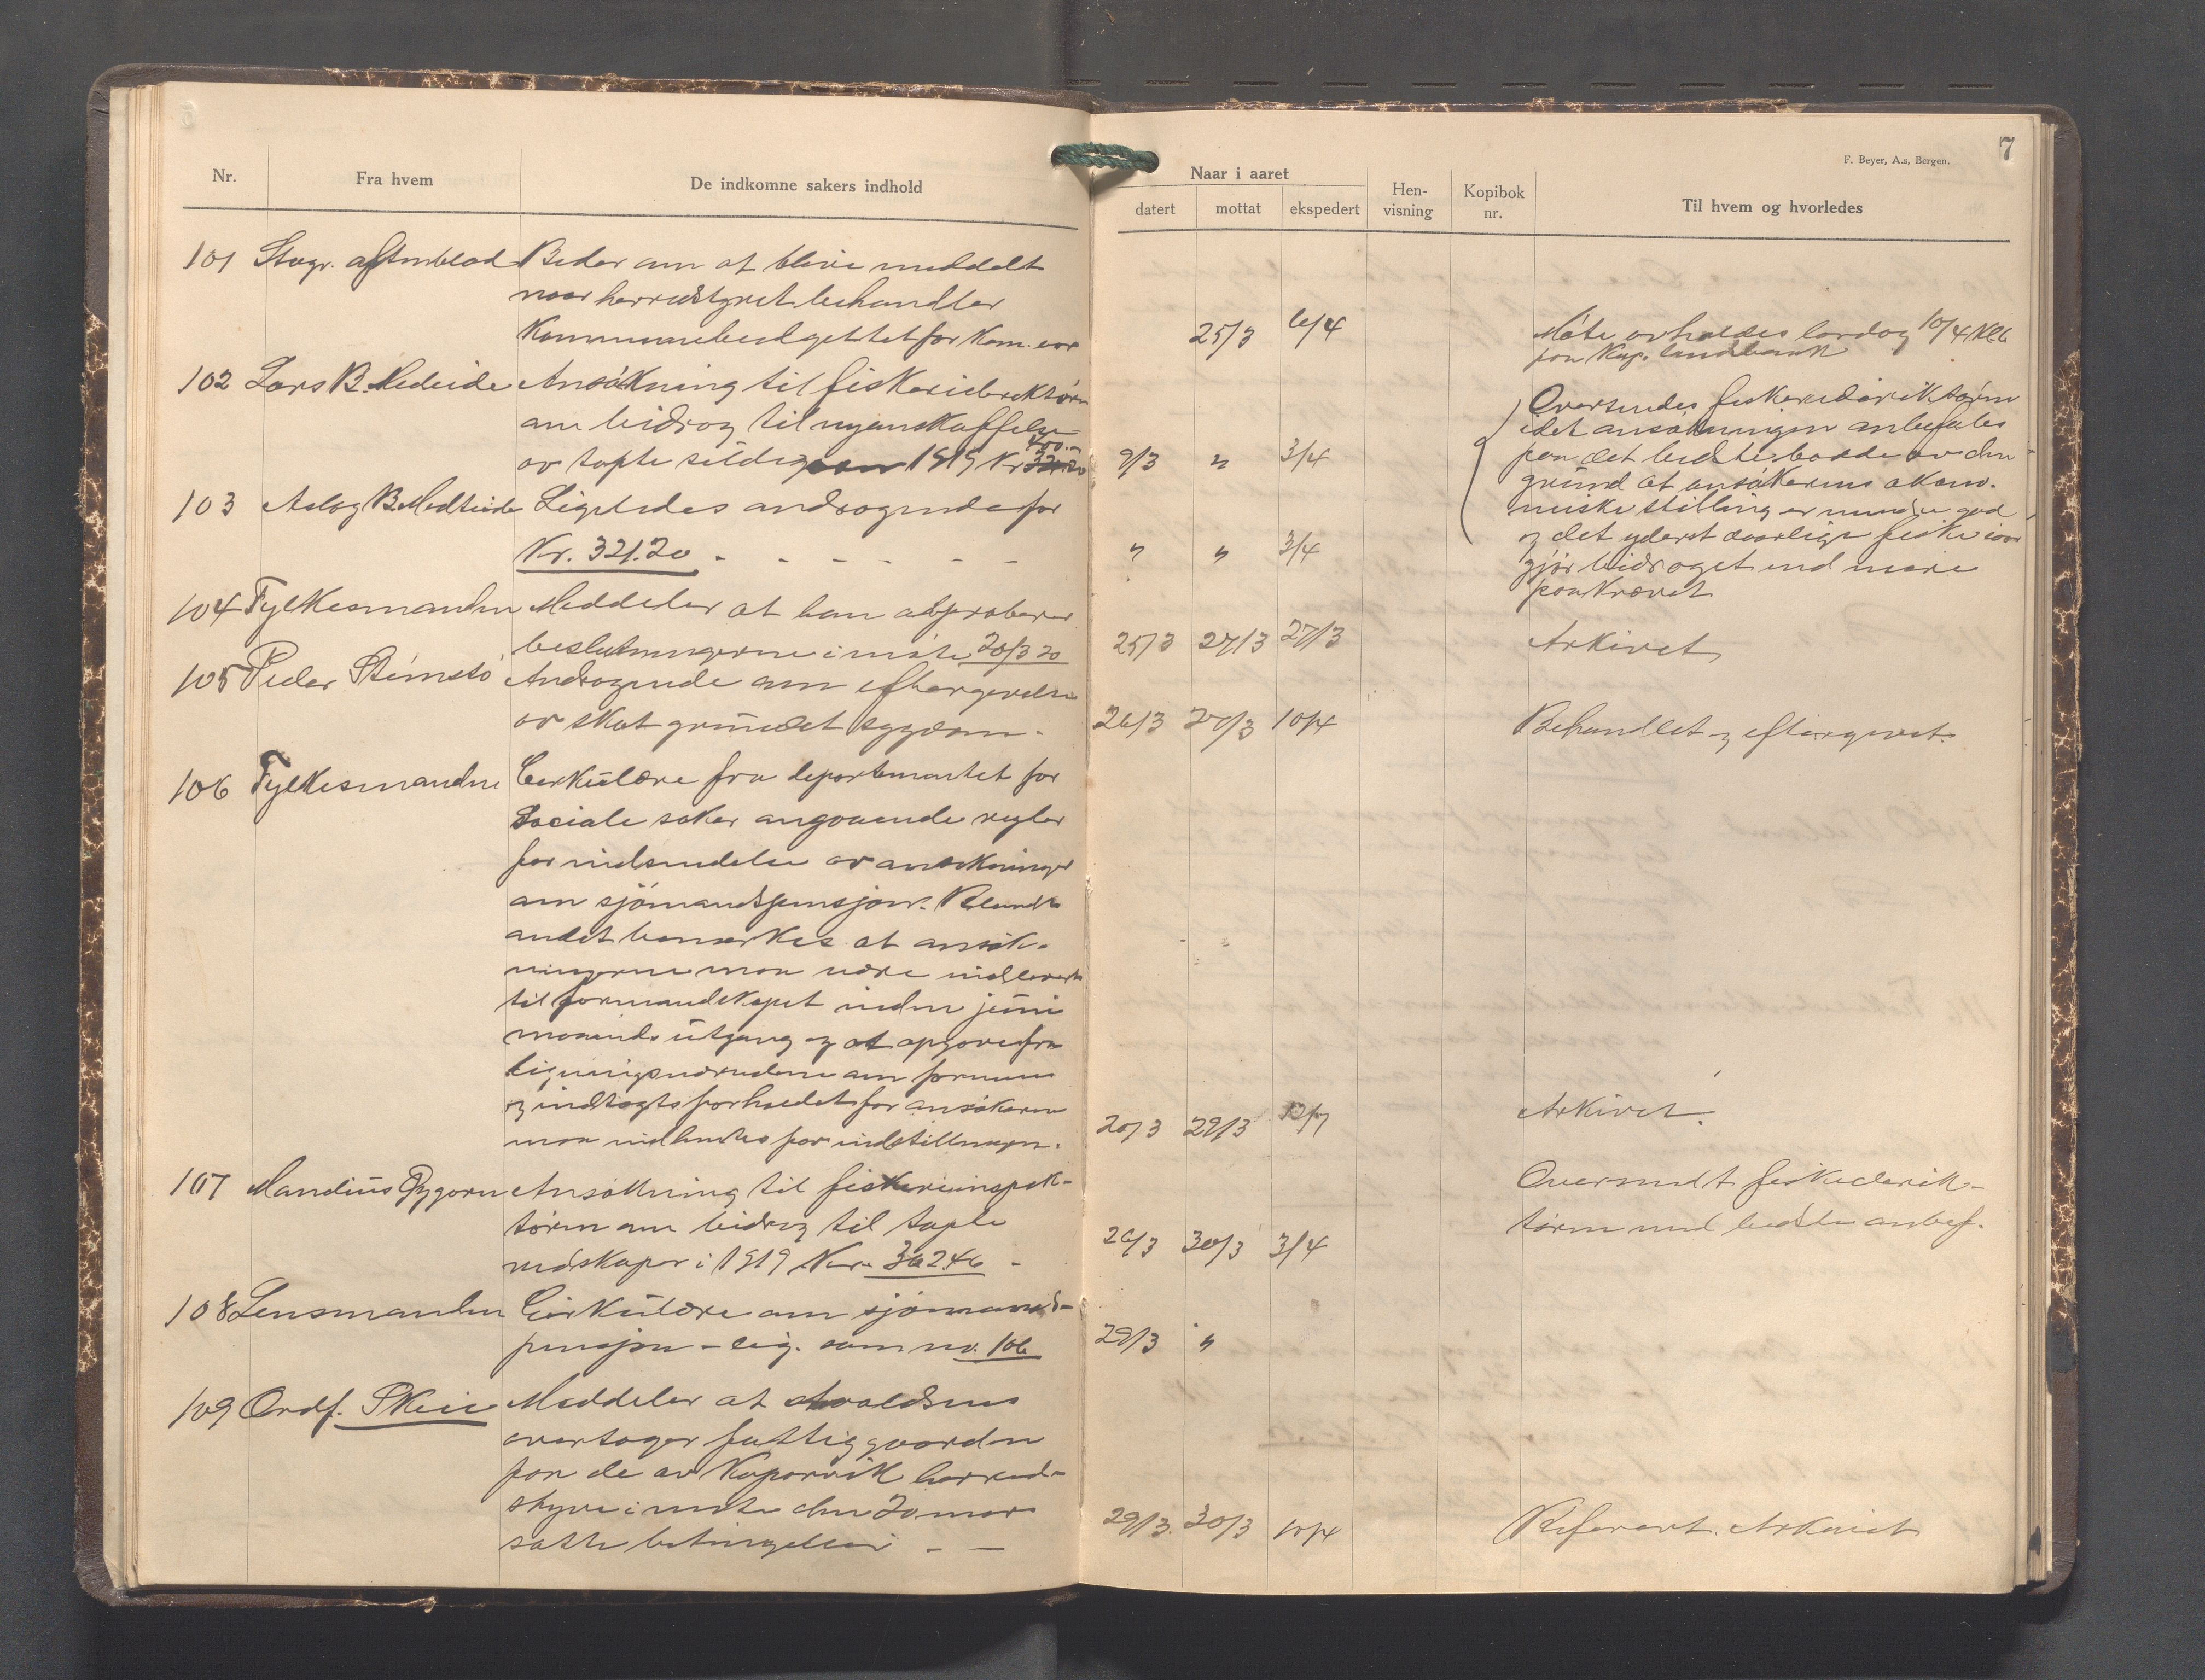 7
F. Beyer, A.s, Bergen.
Nr. Fra hvem De indkomne sakers indhold
Naar i aaret Hen- Kopibok Til hvem og hvorledes
datert mottat ekspedert visning nr.
101 Stavgr. aftenblad Beder om at blive meddelt
naar herredstyret behandler
Kommunebudgettet for kom. aar
25/3 6/4 Møte avholdes lørdag 10/4 Kl 6
paa Kop. landbank
102 Lars B. Medeide Ansökning til fiskeridirektörn
om bidrag til nyanskaffelse
400.-
av tapte sildegarn 1919 Kr 321.20
9/3 " 3/4
Oversendes fiskeridirektörn
idet ansökningen anbefales
paa det bedste baade av den
grund at ansökerens økono-
miske stilling er mindre god
og det yderst daarlige fiske iaar
gjör bidraget end mere
paakrævet
103 Aslag B. Medeide Ligeledes andragende for
Kr. 321.20 - - - - - -
" " 3/4
104 Fylkesmanden Meddeler at han approberer
beslutningerne i möte 20/3 20
25/3 27/3 27/3 Arkivet
105 Peder Stémstö Andragende om eftergivelse
av skat grundet sygdom.
26/3 27/3 10/4 Behandlet og eftergivet.
106 Fylkesmanden Cirkulære fra departementet for
Sociale saker angaaende regler
for indsendelse av ansökninger
om sjömandspensjon. Blandt
andet bemerkes at ansök-
ningerne maa være indlevert
til formandskapet inden juni
maaneds utgang og at opgave fra
ligningsvæsenet om formues
og indtægtsforholdet for ansökeren
maa indhentes før indstillingen.
20/3 29/3 Arkivet.
107 Mandius Ansökning til fiskeriinspek-
törn om bidrag til tapte
redskaper i 1919 Kr. 362.46 -
26/3 30/3 3/4 Oversendt fiskedirek-
törn med bedste anbef.
108 Lensmanden Cirkulære om sjömands-
pensjon - lig. som nr. 106
29/3 "
109 Ordf. Skeie Meddeler at Avaldsnes
overtager fattiggaarden
paa de av Kopervik herred-
styre i möte den 20 mars
satte betingelser - -
29/3. 30/3 10/4 Referert. Arkivet